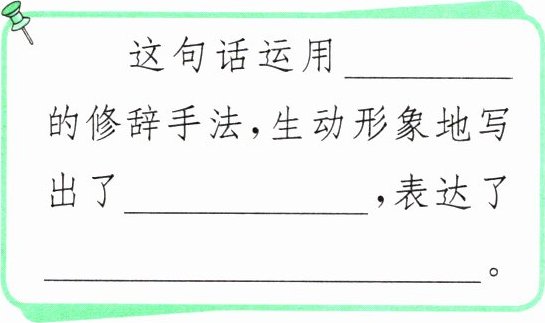 这句话运用__________
的修辞手法，生动形象地写
出了______________，表达了
__________________________。